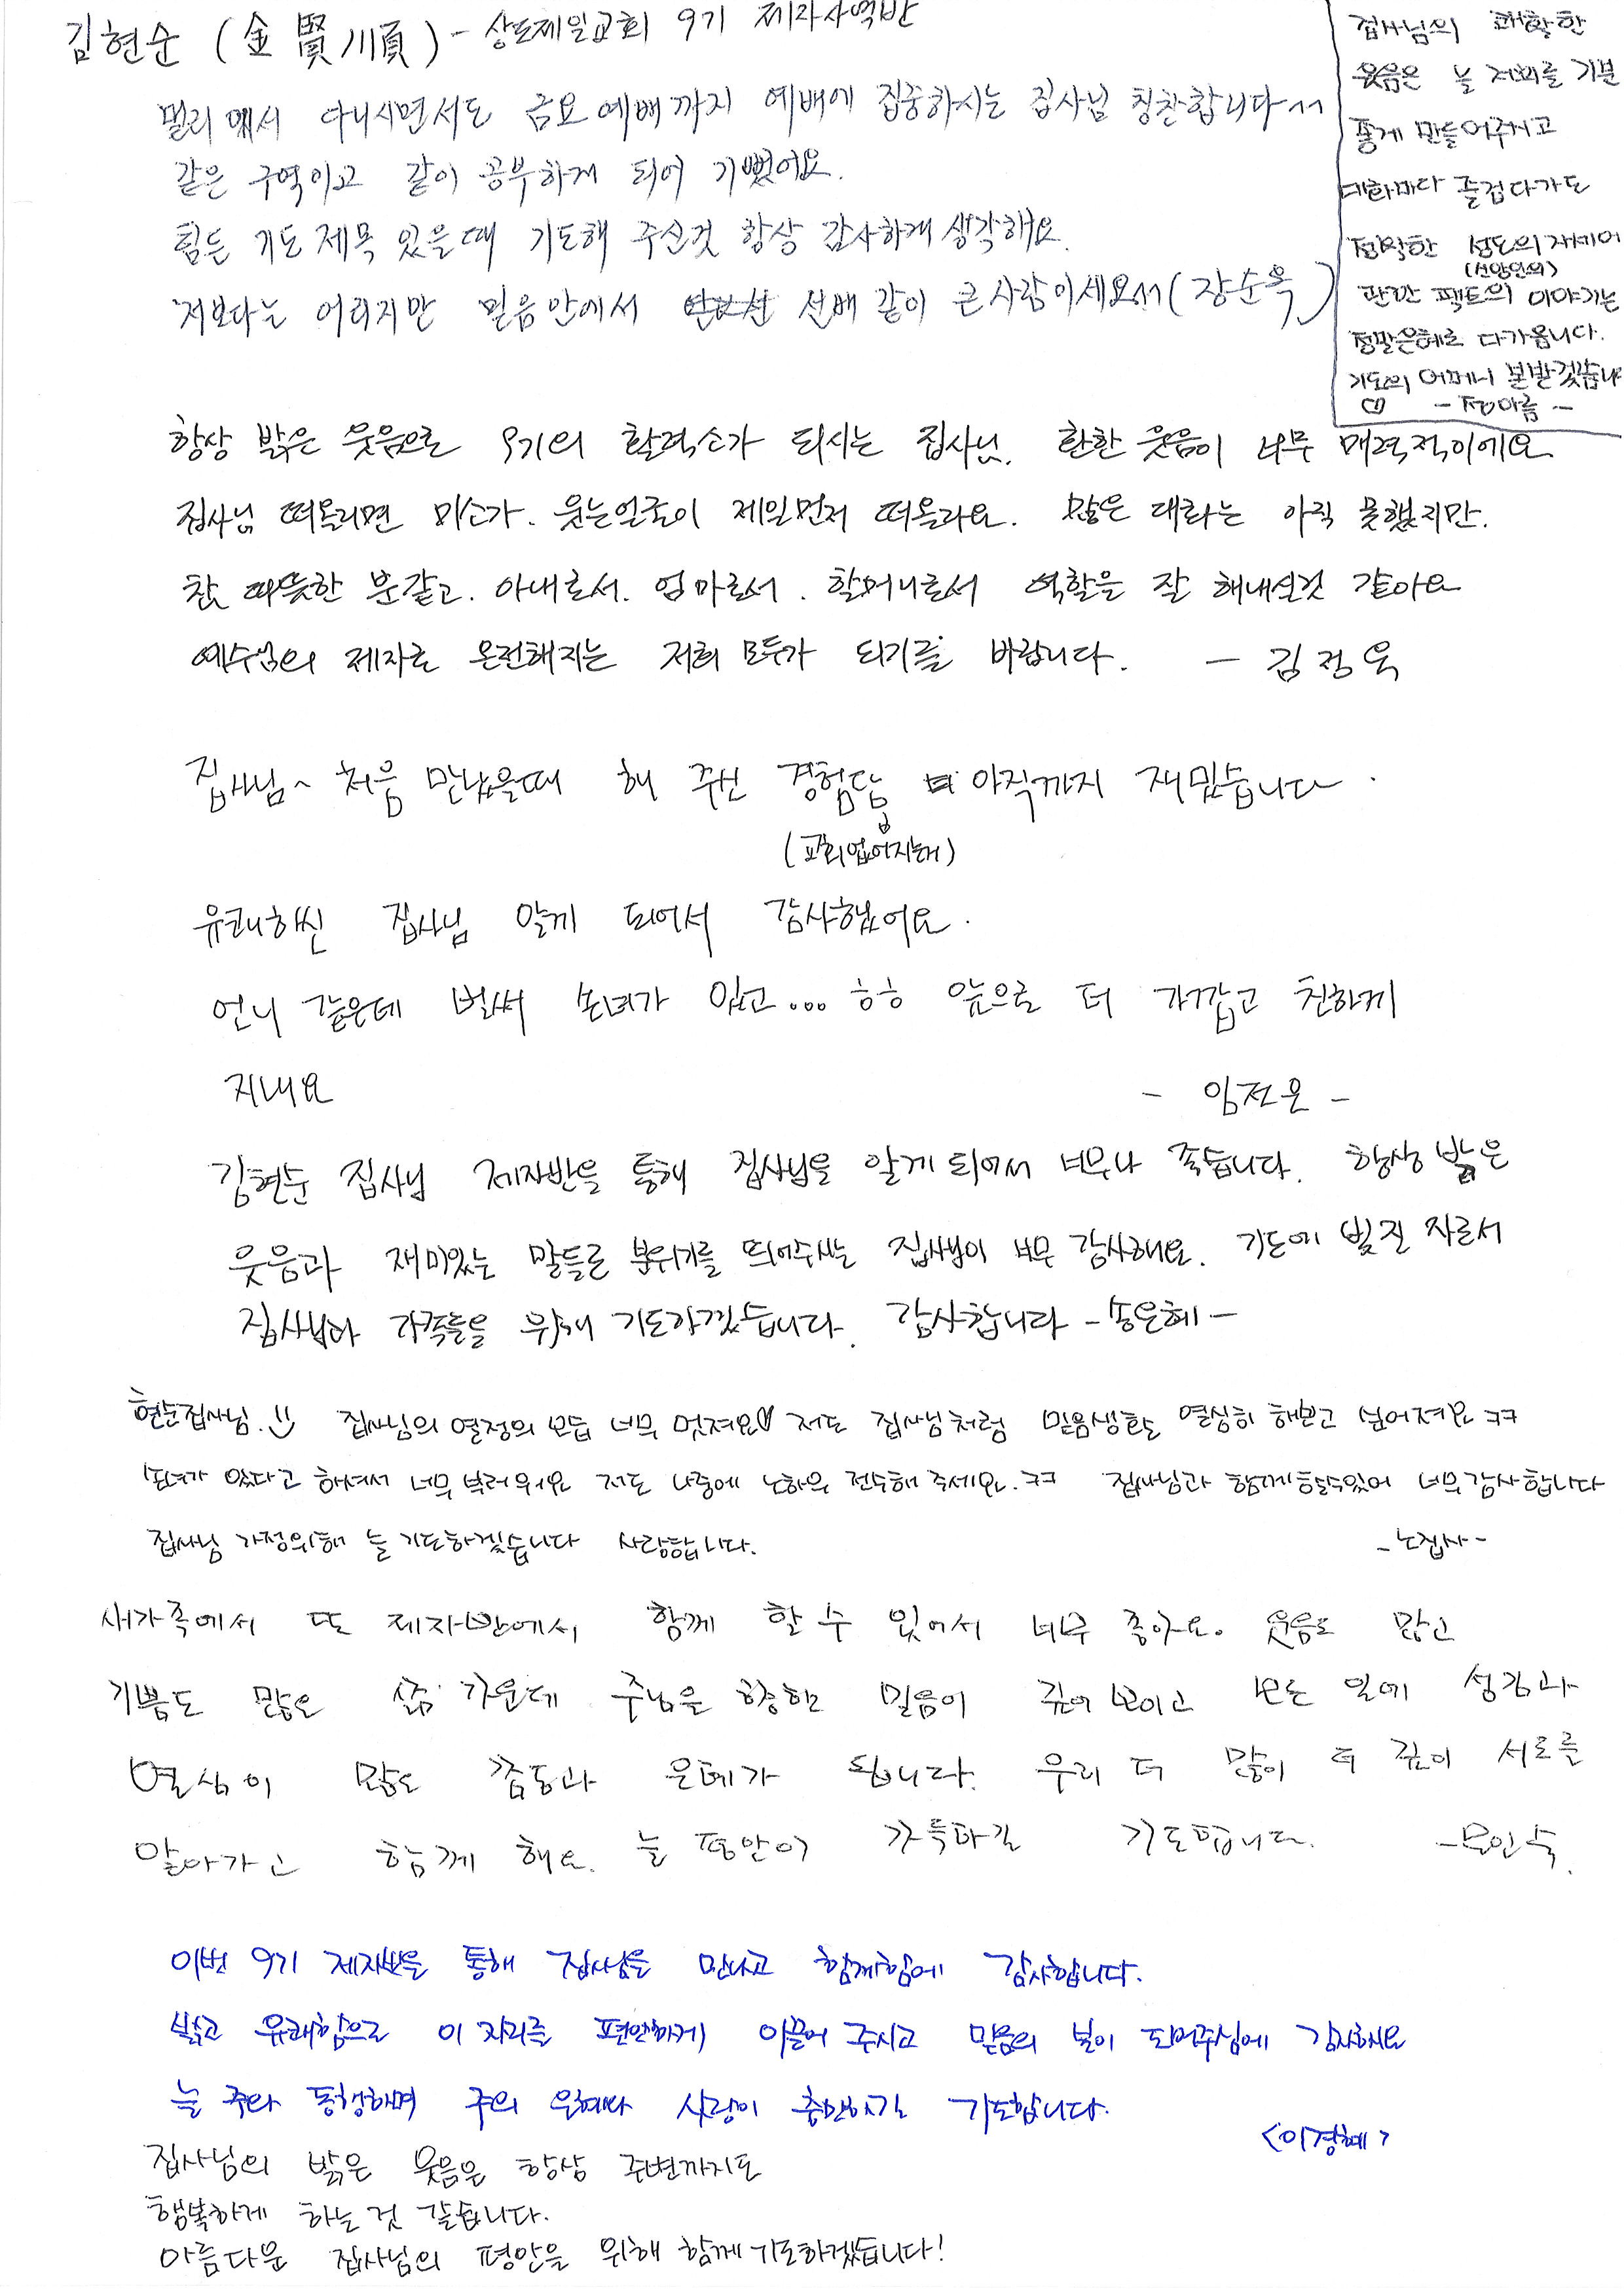 김현순 (金 賢 順) - 상도제일교회 9기 제자사역반
멀리에서 다니시면서도 금요예배까지 예배에 집중하시는 집사님 칭찬합니다~^^
같은 구역이고 같이 공부하게 되어 기뻤어요.
힘든 기도제목 있을때 기도해 주신것 항상 감사하게 생각해요.
저보다는 어리지만 믿음안에서 선배 같이 큰사람이세요^^ (장순옥)
집사님의 쾌활한
웃음은 늘 저희를 기분
좋게 만들어주시고
대화마다 즐겁다가도
정확한 성도의 자세에
(신앙인의)
관한 팩트의 이야기는
정말은혜로 다가옵니다.
기도의 어머니 본받겠습니다
♡ - 정아름 -
항상 밝은 웃음으로 9기의 활력소가 되시는 집사님. 환한 웃음이 너무 매력적이에요
집사님 떠올리면 미소가. 웃는얼굴이 제일먼저 떠올라요. 많은 대화는 아직 못했지만.
참 따뜻한 분같고. 아내로서. 엄마로서. 할머니로서 역할을 잘 해내신것 같아요
예수님의 제자로 온전해지는 저희 모두가 되기를 바랍니다. - 김정욱
집사님~ 처음 만났을때 해 주신 경험담 아직까지 재밌습니다.
(교회없어지는데)
유쾌하신 집사님 알게 되어서 감사했어요.
언니 같은데 벌써 손녀가 있고... ㅎㅎ 앞으로 더 가깝고 친하게
지내요 - 임전온 -
김현순 집사님 제자반을 통해 집사님을 알게 되어서 너무나 좋습니다. 항상 밝은
웃음과 재미있는 말들로 분위기를 띄어주시는 집사님이 너무 감사해요. 기도에 빚진 자로서
집사님과 가족들을 위해 기도하겠습니다. 감사합니다 - 송은혜 -
현순집사님. 집사님의 열정의 모습 너무 멋져요♡ 저도 집사님처럼 믿음생활 열심히 해보고 싶어져요 ㅋㅋ
손녀가 있다고 하셔서 너무 부러워요 저도 나중에 노하우 전수해 주세요. ㅋㅋ 집사님과 함께할수있어 너무감사합니다
집사님 가정위해 늘 기도하겠습니다 사랑합니다. - 노집사 -
새가족에서 또 제자반에서 함께 할 수 있어서 너무 좋아요. 웃음도 많고
기쁨도 많은 삶 가운데 주님을 향한 믿음이 깊어 보이고 모든 일에 섬김과
열심이 많은 감동과 은혜가 됩니다. 우리 더 많이 더 깊이 서로를
알아가고 함께 해요. 늘 평안이 가득하길 기도합니다. - 모인숙.
이번 9기 제자반을 통해 집사님을 만나고 함께함에 감사합니다.
밝고 유쾌함으로 이 자리를 편안하게 이끌어 주시고 믿음의 본이 되어주심에 감사해요
늘 주와 동행하며 주의 은혜와 사랑이 충만하길 기도합니다.
<이경혜>
집사님의 밝은 웃음은 항상 주변까지도
행복하게 하는 것 같습니다.
아름다운 집사님의 평안을 위해 함께 기도하겠습니다!